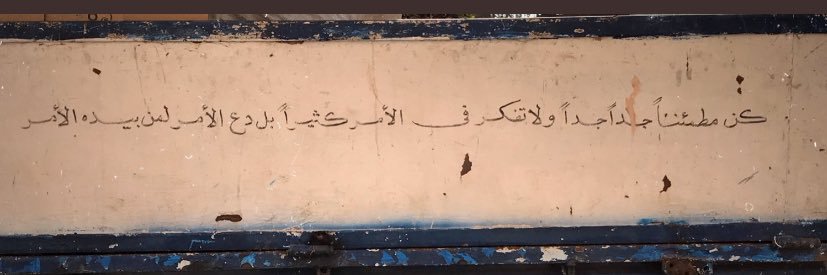 كن مطمئنناً جداً جداً ولا تفكر في الأمر كثيراً بل دع الأمر لمن بيده الأمر